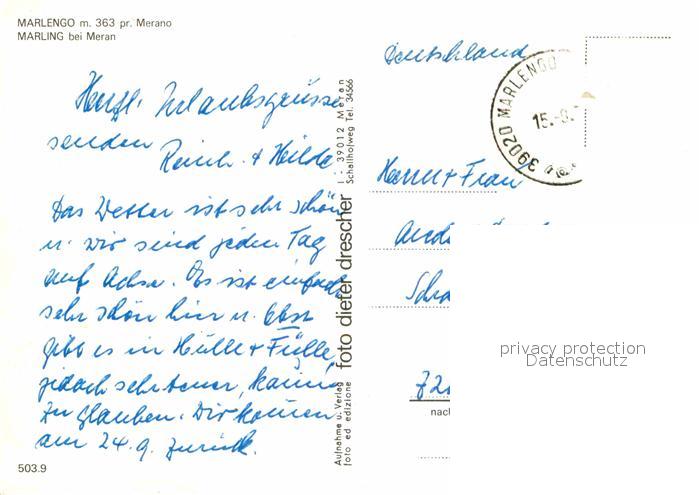 MARLENGO m. 363 pr. Merano
MARLING bei Meran
Herzl. Urlaubsgrüsse
senden
Reinh. + Hilde
Das Wetter ist sehr schön
u. wir sind jeden Tag
auf Achse. Es ist einfach
sehr schön hier u. Obst
gibt es in Hülle + Fülle,
jedoch sehr teuer, kaum
zu glauben. Wir kommen
am 24.9. zurück.
503.9
Aufnahme u. Verlag
foto ed edizione
foto dieter drescher
I - 39012 Meran
Schallholweg Tel. 34566
Deutschland
39020 MARLENGO
15.-9.
Herrn + Frau
72
nach
privacy protection
Datenschutz